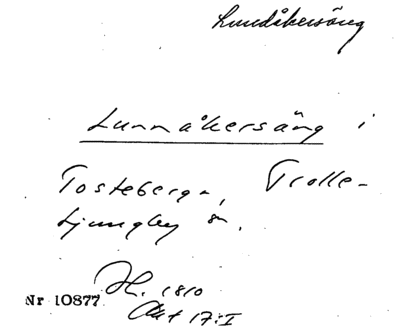 Lundåkersäng
Lunnåkersäng i
Tosteberga, Trolle-
Ljungby sn.
H. 1810
Nr 10877
Akt 17:I